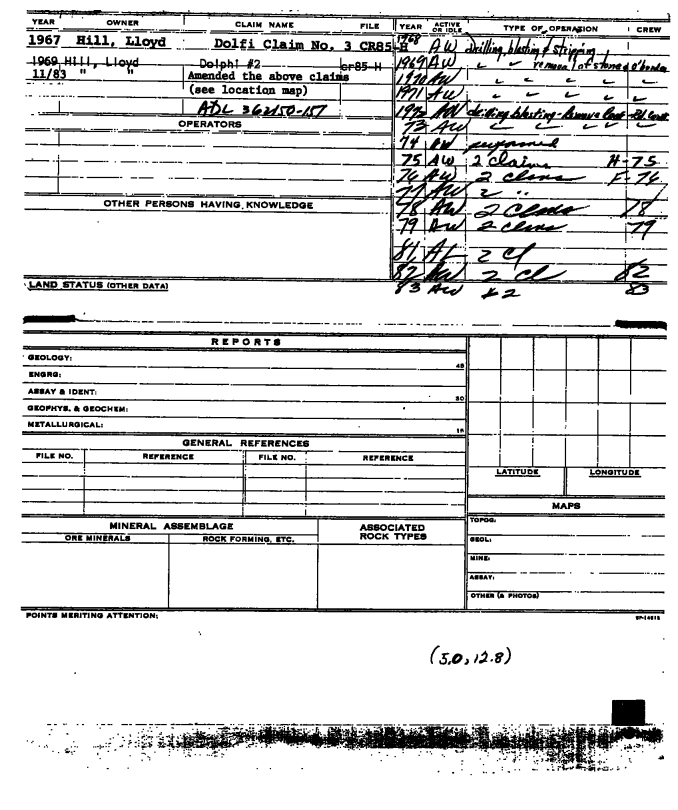 YEAR OWNER CLAIM NAME FILE
1967 Hill, Lloyd Dolfi Claim No. 3 CR85-H
1969 Hill, Lloyd Dolphi #2 cr85-H
11/83 " " Amended the above claims
(see location map)
ADL 362150-157
OPERATORS
OTHER PERSONS HAVING KNOWLEDGE
LAND STATUS (OTHER DATA)
YEAR ACTIVE OR IDLE TYPE OF OPERATION CREW
1968 AW drilling, blasting & stripping
1969 AW removal of stone & o'burden
1970 AW
1971 AW
1972 AW drilling blasting - Remove
73 AW
74 AW performed
75 AW 2 claims H-75
76 AW 2 clms F-76
77 AW 2 "
78 AW 2 clms 78
79 AW 2 clms 79
81 AL 2 cl
82 AW 2 cl 82
83 AW #2 83
REPORTS
GEOLOGY:
45
ENGRG:
ASSAY & IDENT:
30
GEOPHYS. & GEOCHEM:
METALLURGICAL:
15
GENERAL REFERENCES
FILE NO. REFERENCE FILE NO. REFERENCE
LATITUDE LONGITUDE
MINERAL ASSEMBLAGE
ORE MINERALS ROCK FORMING, ETC.
ASSOCIATED ROCK TYPES
MAPS
TOPOG:
GEOL:
MINE:
ASSAY:
OTHER (& PHOTOS)
POINTS MERITING ATTENTION:
(5.0, 12.8)